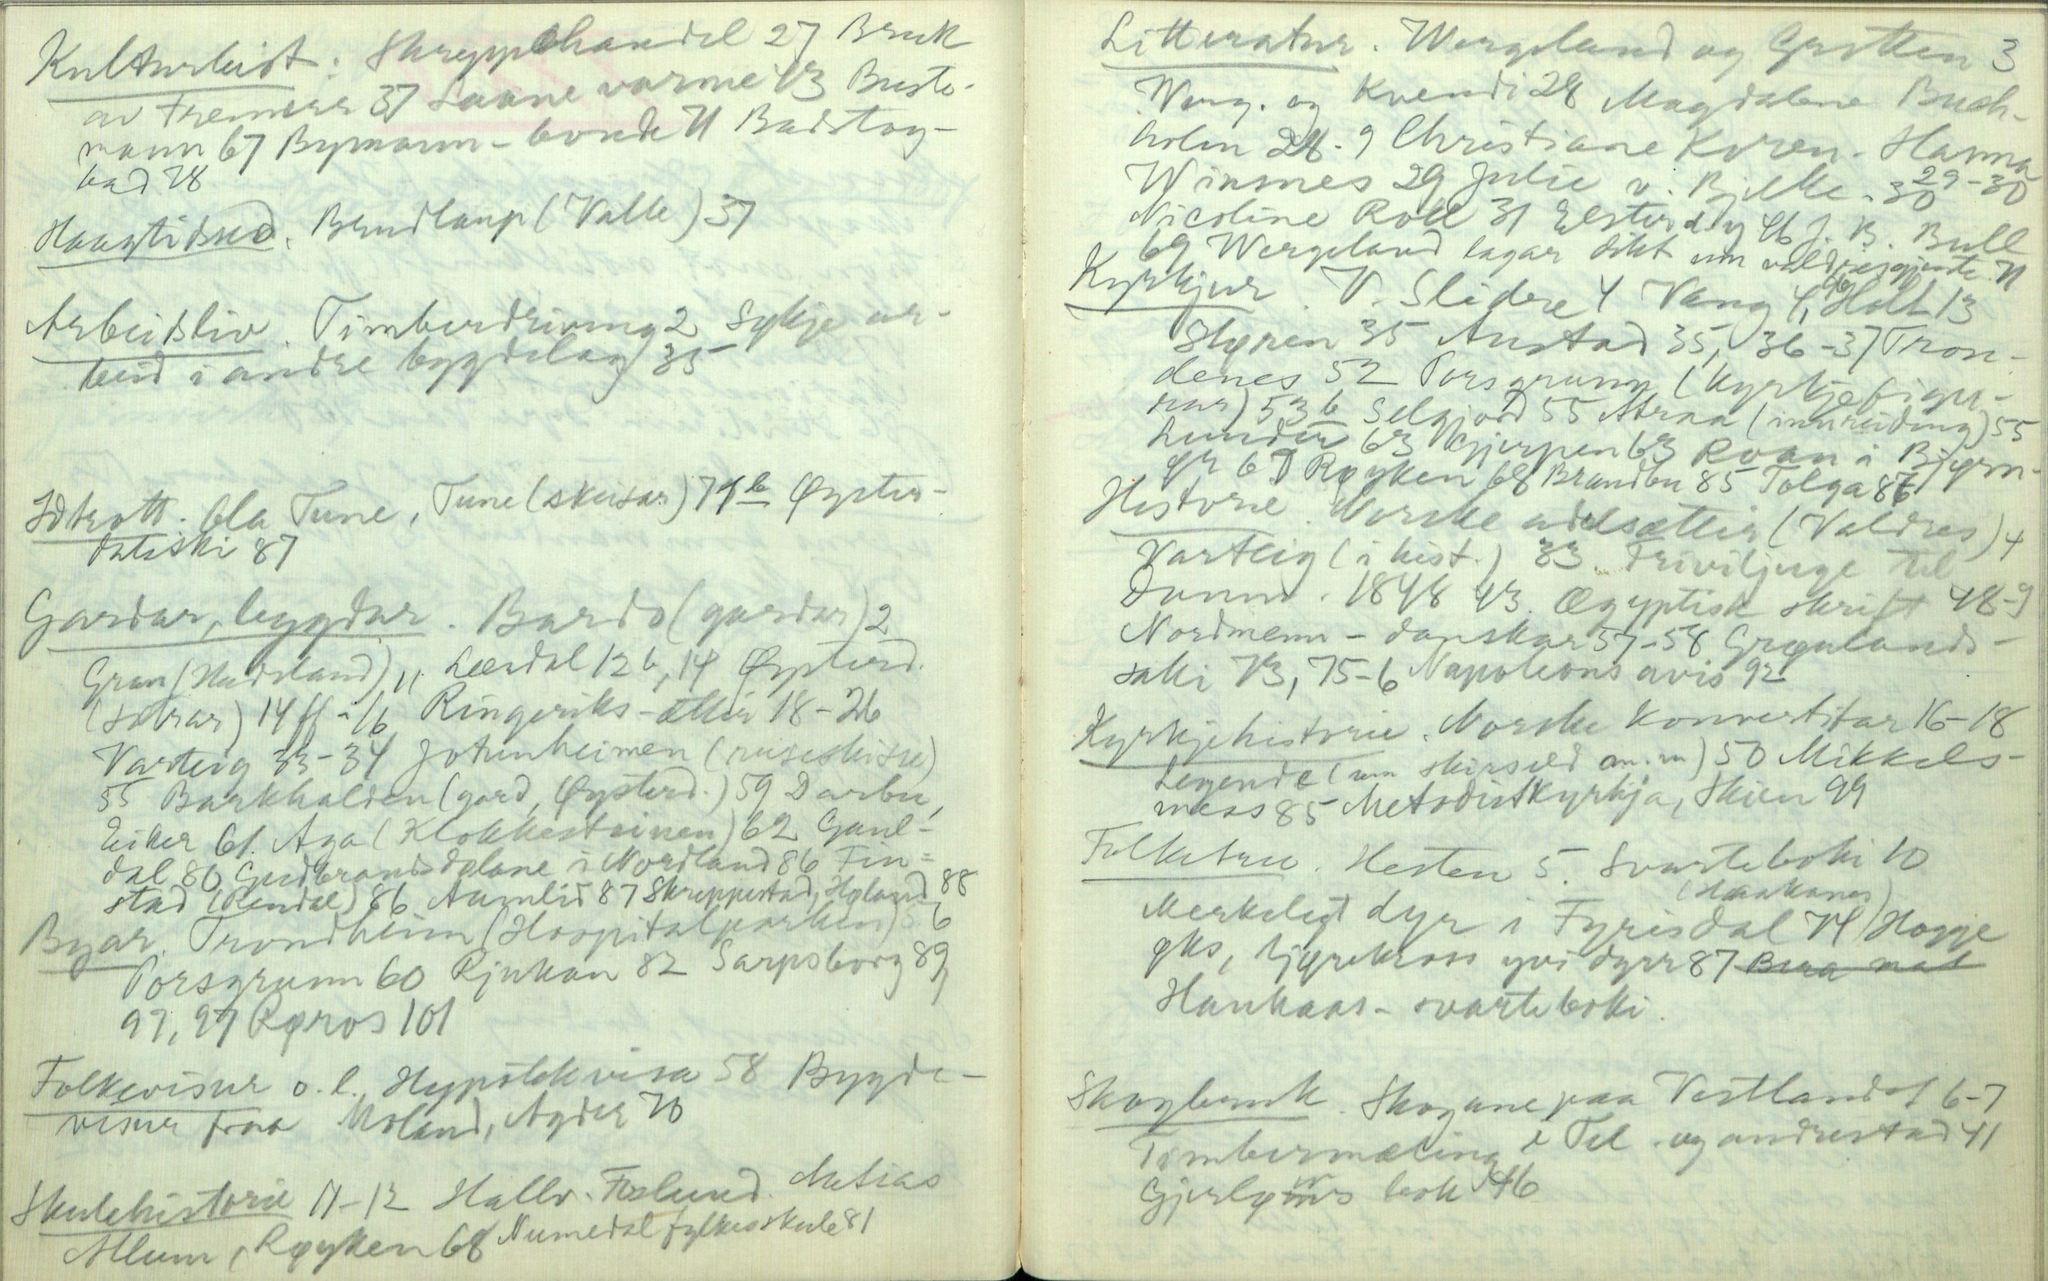 Kulturhist: Skreppehandel 27 Bruk
av Fremerr 37 Laane varme 73 Buste-
mann 67 Bymann - bonde 71 Badstog-
bad 78
Haagtidsed. Brudlaup (Valle) 37
Arbeidsliv. Timberdriving 2 Sykje ar-
beid i andre bygdelag 35
Idrott. Ola Tune, Tune (skeisar) 79 b Øyster-
dalski 87
Gardar, bygdar. Bardo (gardar) 2
Gran (Hadeland) 11 Lærdal 12 b, 14 Øysterd.
(sætrar) 14 ff - 16 Ringeriks-ættir 18-26
Varteig 33-34 Jotunheimen (reiseskisse)
55 Barkhalden (gard, Øysterd.) 59 Darbu,
Eiker 61. Aga (Klokkesteinen) 62 Gaul-
dal 80 Gudbrandsdølane i Nordland 86 Fin-
stad (Rendal) 86 Aamlid 87 Skreppestad, Hyland 88
Byar. Trondheim (Hospitalparken) 56
Porsgrunn 60 Rjukan 82 Sarpsborg 89
97, 97 Røros 101
Folkevisur o.l. Hypotekvisa 58 Bygde-
visur fraa Moland, Agder 70
Skulehistorie 11-12 Hallv. Foslund. Matias
Allum, Røyken 68 Numedal fylkesskule 81
Litteratur. Wergeland og Grotten 3
Werg. og Kvendi 28 Magdalene Buch-
holm 28-9 Christiane Koren - Hanna
Winsnes 29 Julie v. Bjelke. 30 29-30
Nicoline Roll 31 Elsterd y 46 J. B. Bull
69 Wergeland lagar dikt um valdresgjente 71
Kyrkjur. V. Slidre 4 Vang 4, Holt 13
Støren 35 Austad 35, 36-37 Tron-
denes 52 Porsgrunn (kyrkjefigu-
rar) 53 b Selgjord 55 Atraa (innreiding) 55
Lunder 63 Gjerpen 63 Roan i Bjørn-
ør 67 Røyken 68 Brandbu 85 Tolga 86
Historie. Norske adelsættir (Valdres) 4
Varteig (i hist.) 33 Friviljuge til
Danm. 1848 43. Ægyptisk skrift 48-9
Nordmenn - danskar 57-58 Grønlands-
saki 73, 75-6 Napoleons avis 92
Kyrkjehistorie. Norske konvertitar 16-18
Legende (um skirseld m.m) 50 Mikkels-
mess 85 Metodistkyrkja, Skien 99
Folketru. Hesten 5. Svarteboki 10
(Haukanes)
Merkelegt dyr i Fyrisdal 74 Hogge
øks, tjørekross yvi dyrr 87 Bera mat
Haukaas - svarteboki.
Skogbruk. Skogane paa Vestlandet 6-7
Timbermæling i Tel. og andrestad 41
Gjerløws bok 46